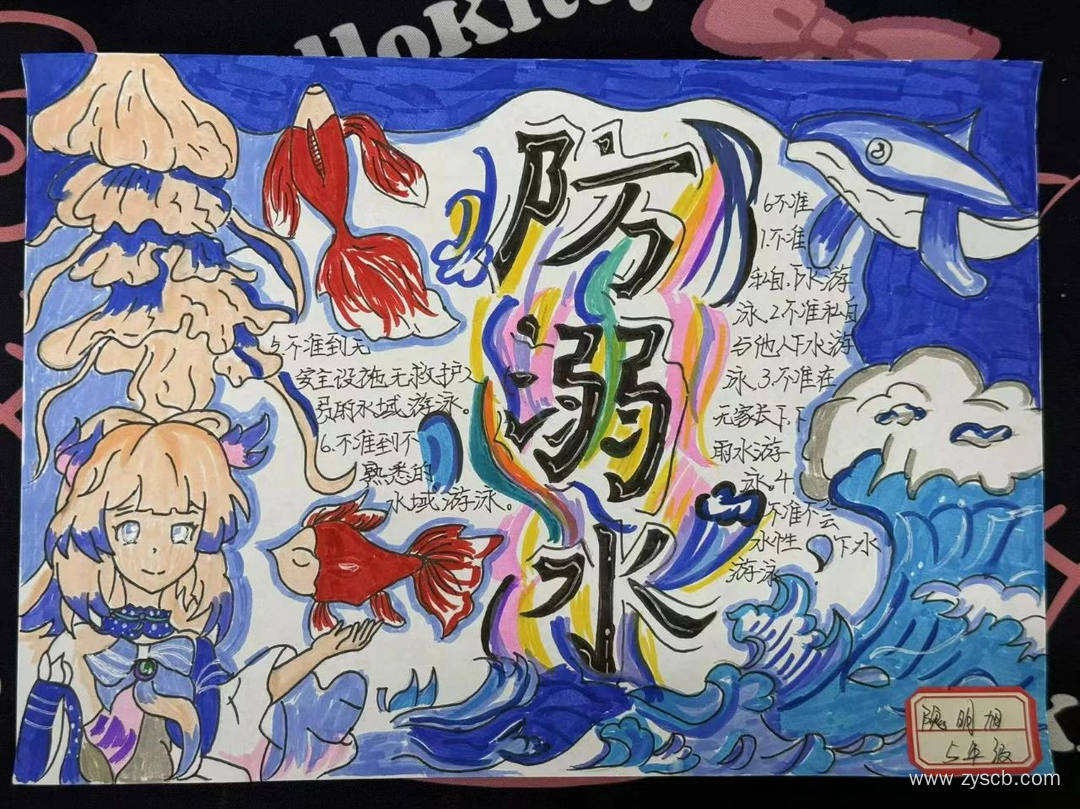 防溺水
6不准
1.不准
私自下水游
泳.2.不准私自
与他人下水游
泳.3.不准在
无家长下下
雨水游
泳。4
不准不会
水性下水
游泳
5.不准到无
安全设施无救护人
员的水域游泳。
6.不准到不
熟悉的
水域游泳。
明旭
5年级
www.zyscb.com